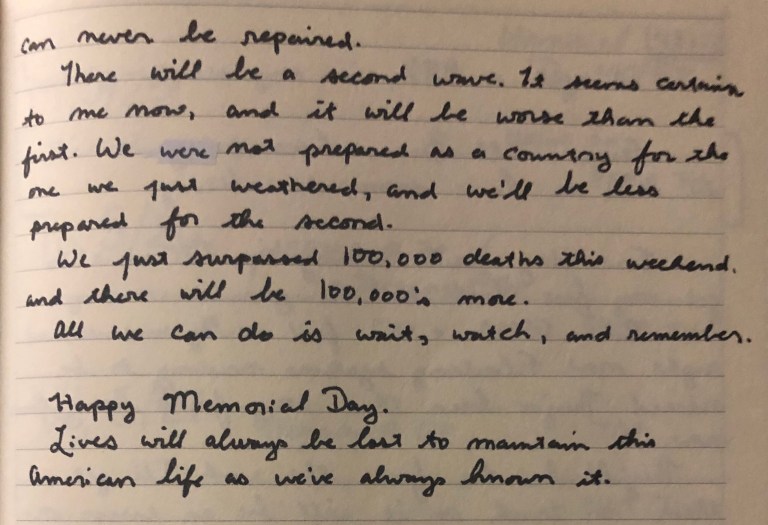 can never be repaired.
There will be a second wave. It seems certain
to me now, and it will be worse than the
first. We were not prepared as a country for the
one we just weathered, and we'll be less
prepared for the second.
We just surpassed 100,000 deaths this weekend.
and there will be 100,000's more.
All we can do is wait, watch, and remember.
Happy Memorial Day.
Lives will always be lost to maintain this
American life as we've always known it.